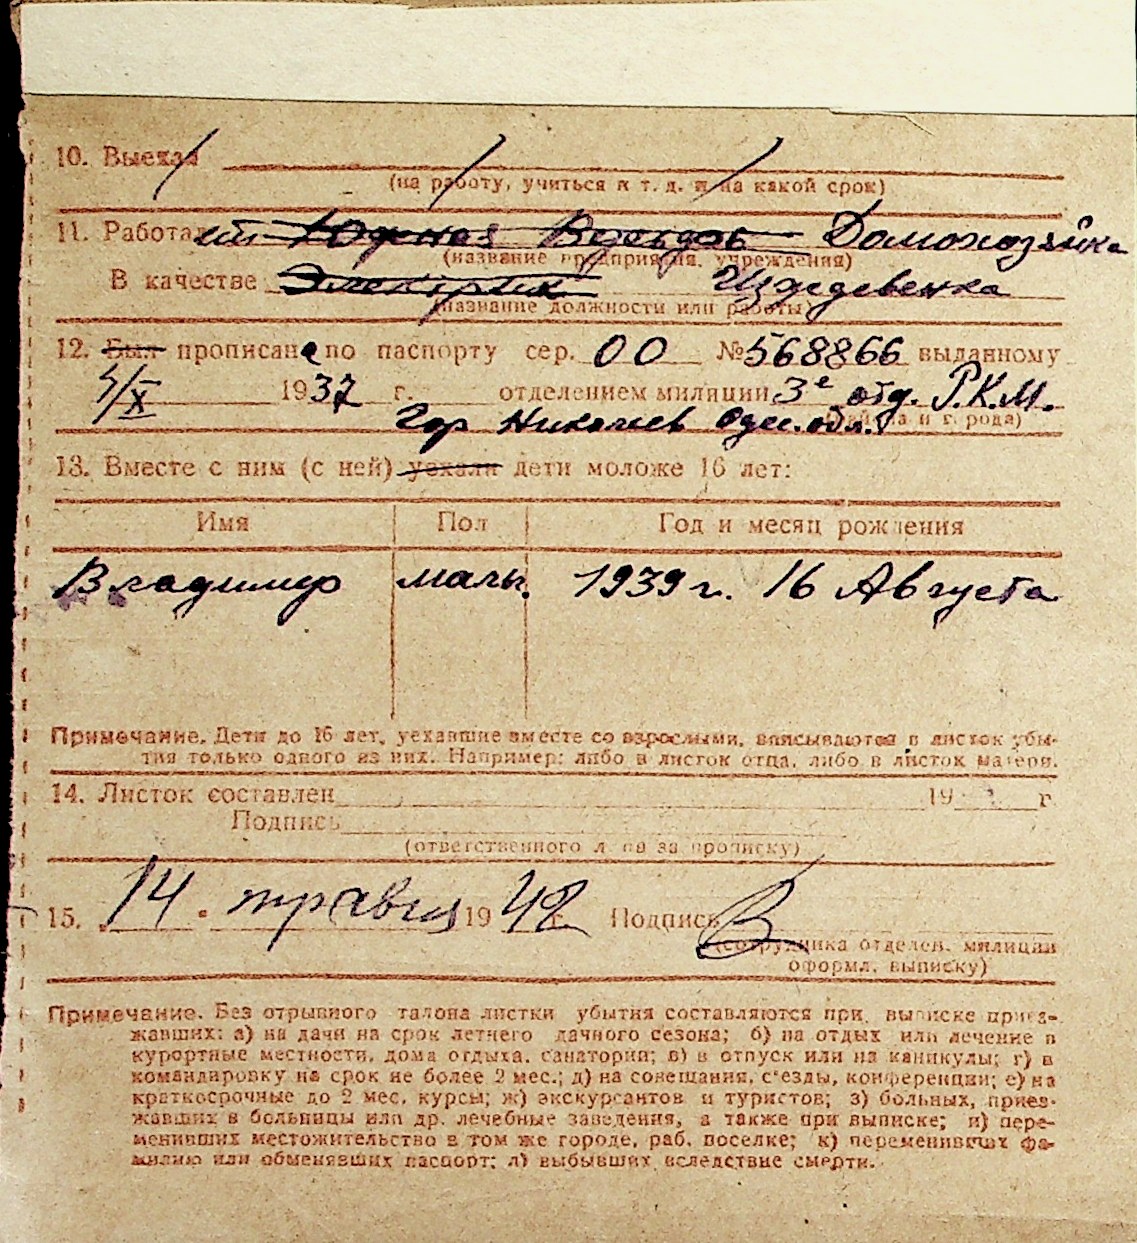 10. Выехал
(на работу, учиться и т. д. и на какой срок)
11. Работает Южная Домохозяйка
(название предприятия, учреждения)
В качестве Электрик Иждевенка
(название должности или работы)
12. Был прописана по паспорту сер. 00 № 568866 выданному
5/X 1937 г. отделением милиции 3е отд. Р.К.М.
Гор Николаев Одес. обл. (района и города)
13. Вместе с ним (с ней) уехали дети моложе 16 лет:
Имя Пол Год и месяц рождения
Владимир мальч. 1939 г. 16 Августа
Примечание. Дети до 16 лет, уехавшие вместе со взрослыми, вписываются в листок убы-
тия только одного из них. Например: либо в листок отца, либо в листок матери.
14. Листок составлен 19 г
Подпись
(ответственного лица за прописку)
15. 14. травня 1942 г. Подпись
(сотрудника отделен. милиции
оформл. выписку)
Примечание. Без отрывного талона листки убытия составляются при выписке приез-
жавших: а) на дачи на срок летнего дачного сезона; б) на отдых или лечение в
курортные местности, дома отдыха, санатории; в) в отпуск или на каникулы; г) в
командировку на срок не более 2 мес.; д) на совещания, с'езды, конференции; е) на
краткосрочные до 2 мес. курсы; ж) экскурсантов и туристов; з) больных, приез-
жавших в больницы или др. лечебные заведения, а также при выписке; и) пере-
менивших местожительство в том же городе, раб. поселке; к) переменивших фа-
милию или обменявших паспорт; л) выбывших вследствие смерти.